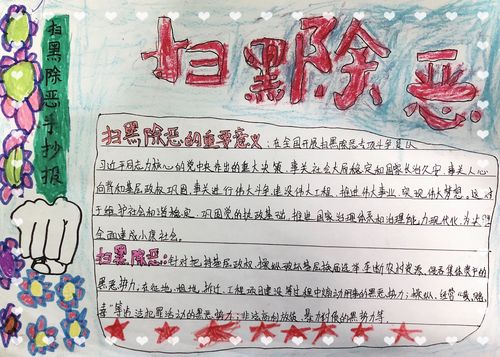 扫黑除恶
扫黑除恶手抄报
扫黑除恶的重要意义：在全国开展扫黑除恶专项斗争是以
习近平同志为核心的党中央作出的重大决策，事关社会大局稳定和国家长治久安，事关人心
向背和基层政权巩固，事关进行伟大斗争建设伟大工程，推进伟大事业，实现伟大梦想，这对
于维护社会和谐稳定，巩固党的执政基础，推进国家治理体系和治理能力现代化，为
全面建成小康社会。
扫黑除恶：针对把持基层政权，操纵破坏基层换届选举，垄断农村资源，侵吞集体资产的
黑恶势力；在征地、租地、拆迁、工程项目建设等过程中煽动闹事的黑恶势力；操纵、经营“黄、赌、
毒”等违法犯罪活动的黑恶势力；非法高利放贷、暴力讨债的黑恶势力等。